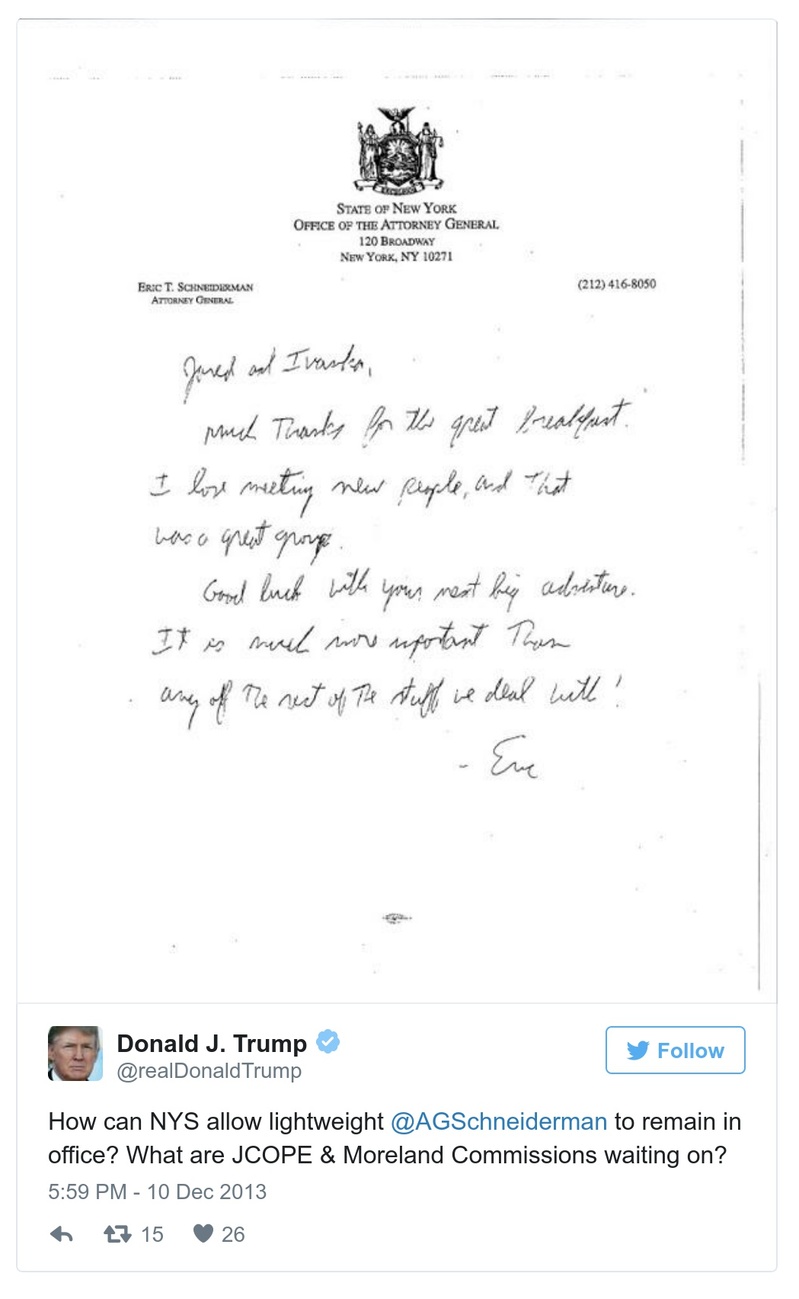 EXCELSIOR
STATE OF NEW YORK
OFFICE OF THE ATTORNEY GENERAL
120 BROADWAY
NEW YORK, NY 10271
ERIC T. SCHNEIDERMAN
ATTORNEY GENERAL
(212) 416-8050
Jared and Ivanka,
Much Thanks for the great breakfast.
I love meeting new people, and that
was a great group.
Good luck with your next big adventure.
It is much more important Than
any off The rest of The stuff we deal with!
- Eric
Donald J. Trump
@realDonaldTrump
Follow
How can NYS allow lightweight @AGSchneiderman to remain in
office? What are JCOPE & Moreland Commissions waiting on?
5:59 PM - 10 Dec 2013
15 26